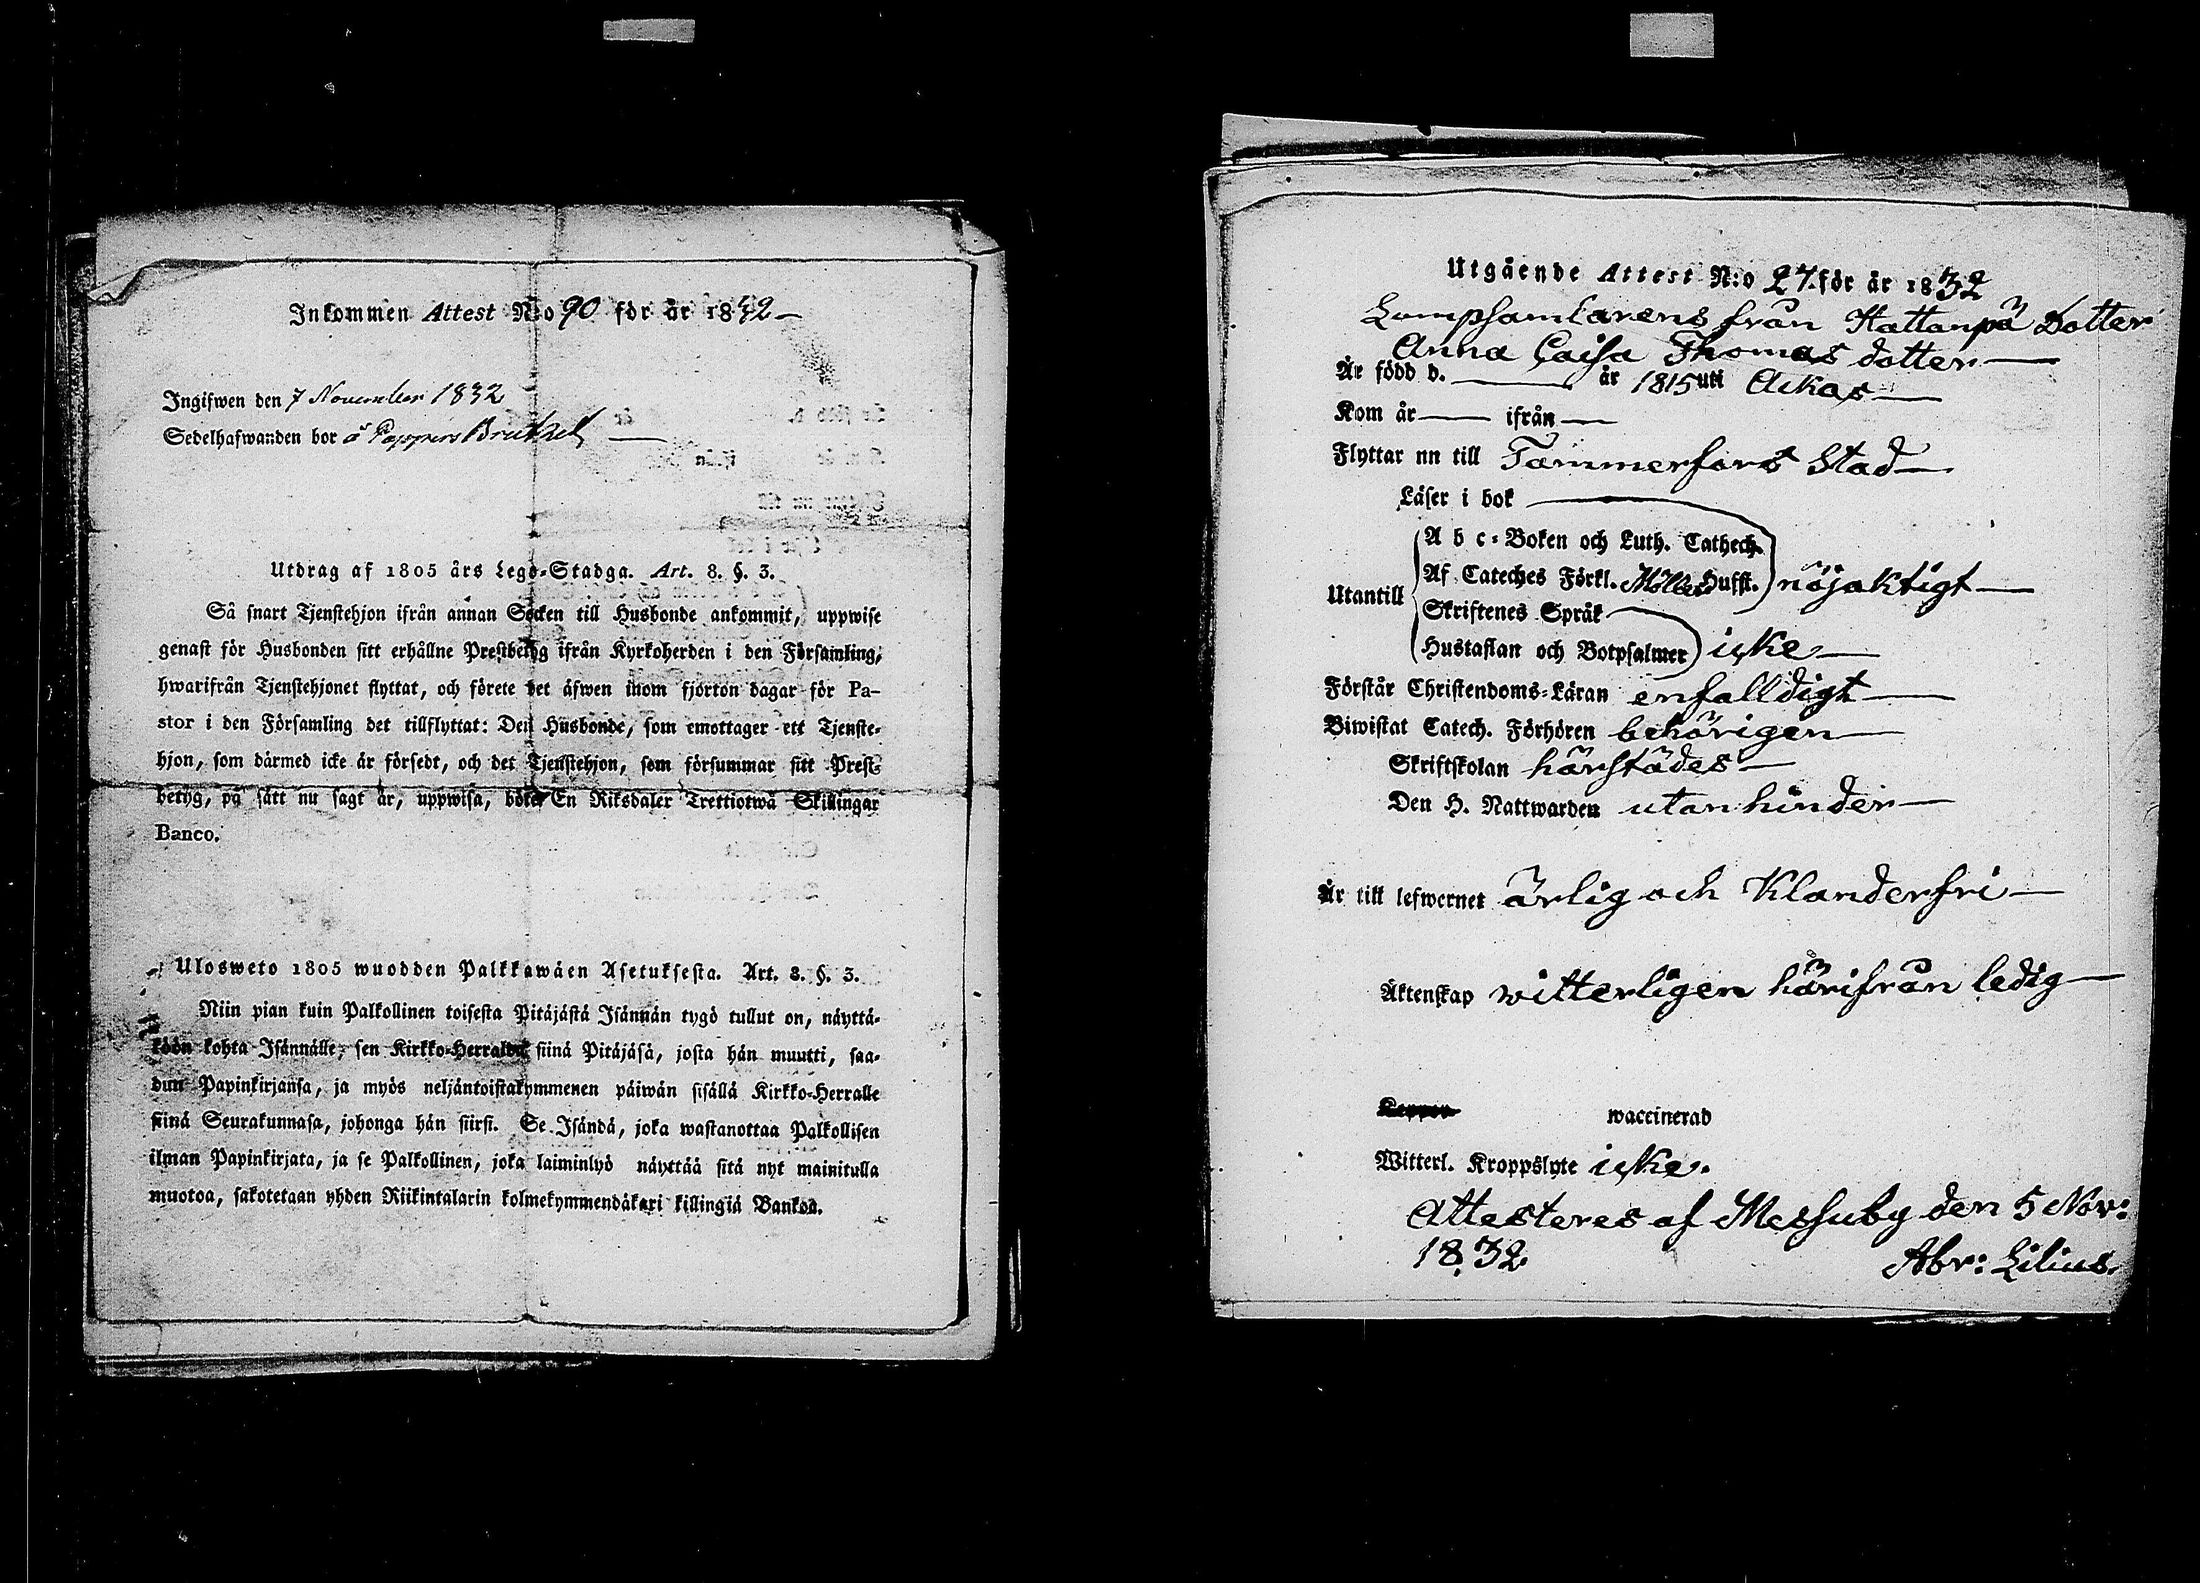 Inkommen Attest N:o 90 för år 1832
Ingifwen den 7 November 1832
Sedelhafwanden bor å Pappers Bruket
Utdrag af 1805 års Lego-Stadga. Art. 8. §. 3.
Så snart Tjenstehjon ifrån annan Socken till Husbonde ankommit, uppwise
genast för Husbonden sitt erhållne Prestbetyg ifrån Kyrkoherden i den Församling,
hwarifrån Tjenstehjonet flyttat, och förete det äfwen inom fjorton dagar för Pa-
stor i den Församling det tillflyttat: Den Husbonde, som emottager ett Tjenste-
hjon, som därmed icke är försedt, och det Tjenstehjon, som försummar sitt Prest-
betyg, på sätt nu sagt är, uppwisa, böte En Riksdaler Trettiotwå Skillingar
Banco.
Ulosweto 1805 wuodden Palkkawäen Asetuksesta. Art. 8. §. 3.
Niin pian kuin Palkollinen toisesta Pitäjästä Isännän tygö tullut on, näyttä-
köön kohta Isännälle, sen Kirkko-Herralda siinä Pitäjäsä, josta hän muutti, saa-
dun Papinkirjansa, ja myös neljäntoistakymmenen päiwän sisällä Kirkko-Herralle
siinä Seurakunnasa, johonga hän siirsi. Se Isändä, joka wastanottaa Palkollisen
ilman Papinkirjata, ja se Palkollinen, joka laiminlyö näyttää sitä nyt mainitulla
muotoa, sakotetaan yhden Riikintalarin kolmekymmendäkaxi killingiä Bankoa.
Utgående Attest N:o 27 för år 1832
Lumpsamlarens från Hattanpä Dotter
Anna Caisa Thomas dotter
Är född d. — år 1815 uti Ackas
Kom år — ifrån —
Flyttar nn till Tammerfors Stad
Läser i bok
A b c-Boken och Luth. Cathech.
Af Cateches Förkl. Möllers Hufst. nöjaktigt
Utantill
Skriftenes Språk
Hustaflan och Botpsalmer icke
Förstår Christendoms-Läran enfalldigt
Biwistat Catech. Förhören behörigen
Skriftskolan härstädes
Den H. Nattwarden utan hinder
Är till lefwernet ärlig och Klanderfri
Äktenskap witterligen härifrån ledig
waccinerad
Witterl. Kroppslyte icke.
Attesteres af Messuby den 5 Nov:
1832 Abr: Lilius.